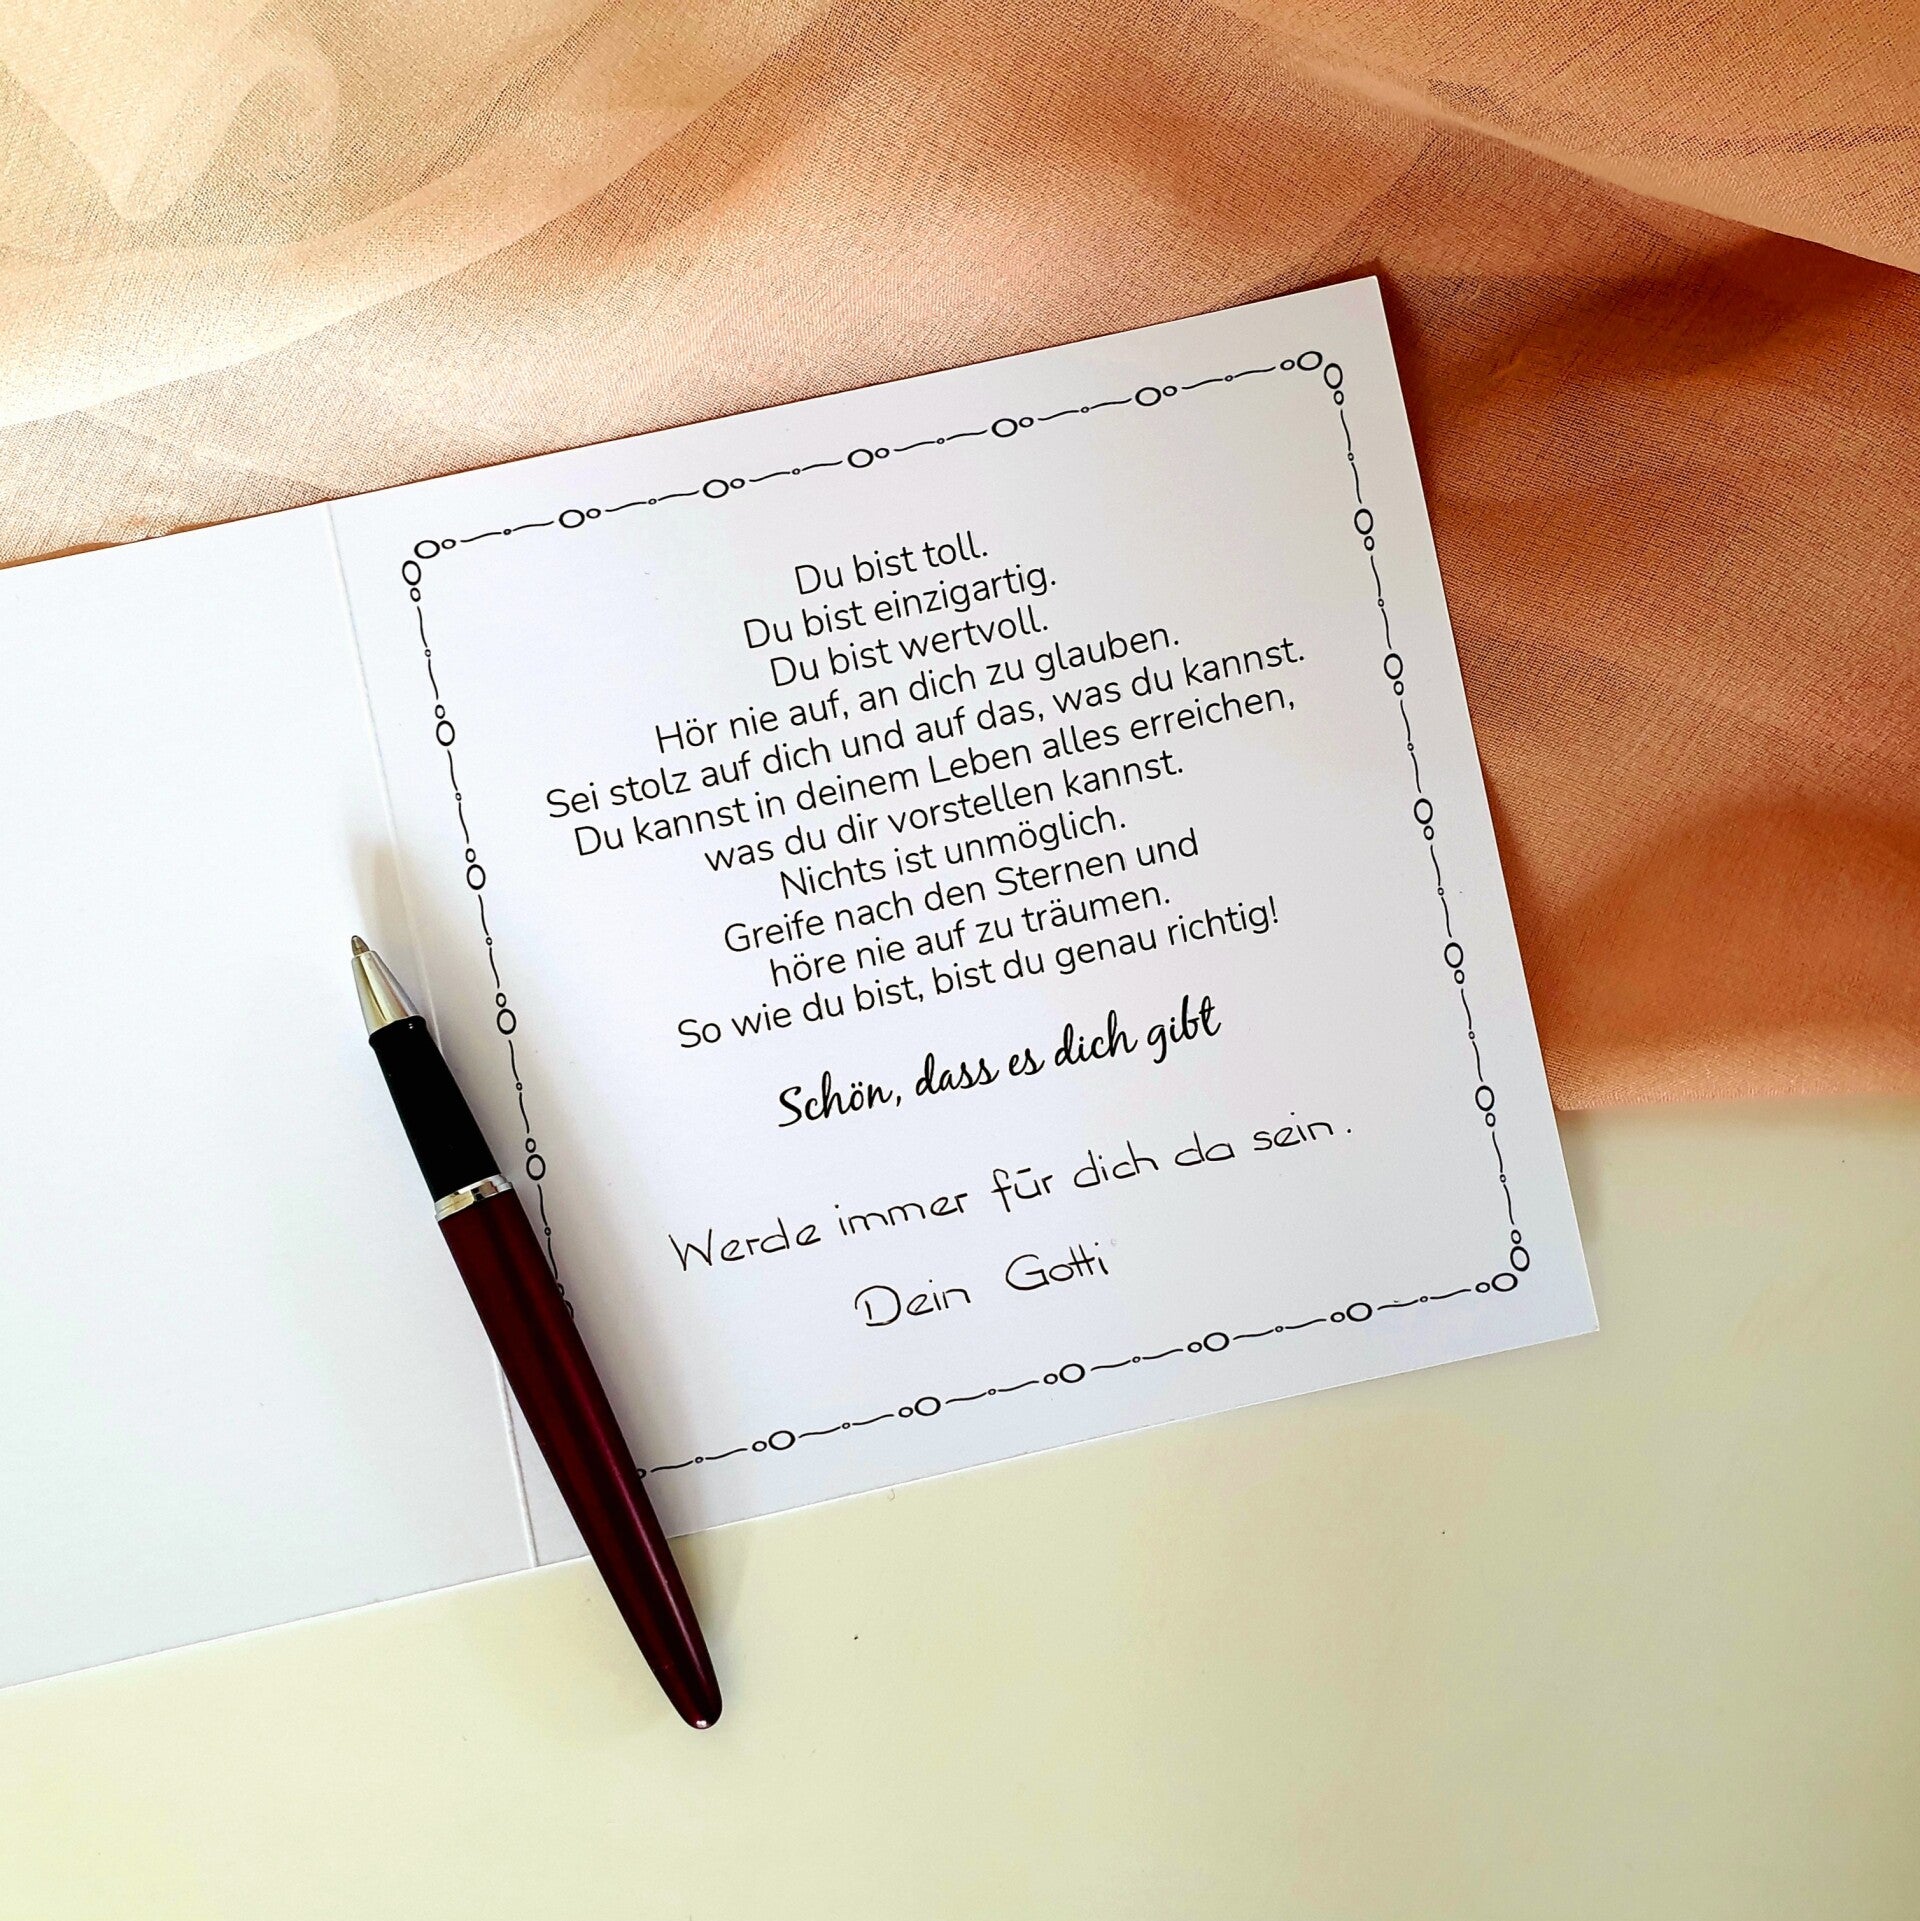 Du bist toll.
Du bist einzigartig.
Du bist wertvoll.
Hör nie auf, an dich zu glauben.
Sei stolz auf dich und auf das, was du kannst.
Du kannst in deinem Leben alles erreichen,
was du dir vorstellen kannst.
Nichts ist unmöglich.
Greife nach den Sternen und
höre nie auf zu träumen.
So wie du bist, bist du genau richtig!
Schön, dass es dich gibt
Werde immer für dich da sein.
Dein Gotti